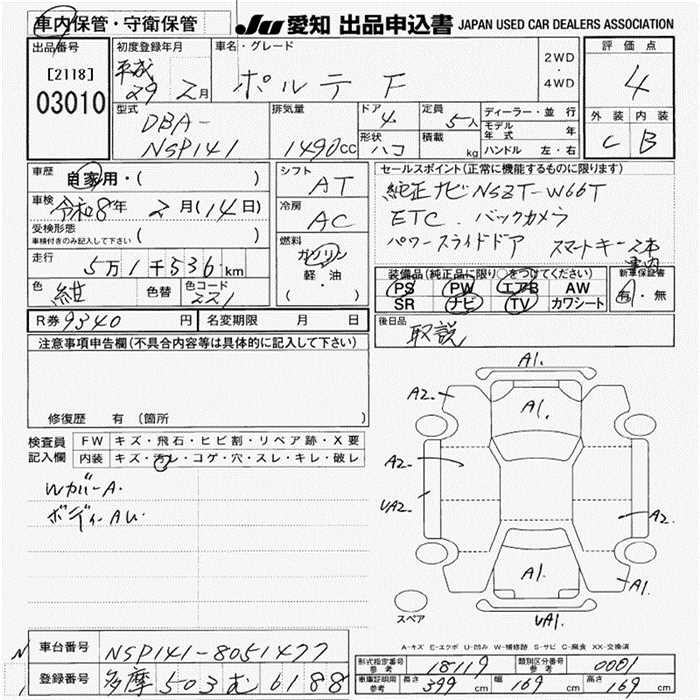 車内保管・守衛保管
JU 愛知 出品申込書 JAPAN USED CAR DEALERS ASSOCIATION
出品番号
[2118]
03010
初度登録年月
平成
29 2月
車名・グレード
ポルテ F
2WD
・
4WD
評価点
4
外装 内装
C B
型式
DBA-
NSP141
排気量
1490cc
ドア
4
定員
5人
形状
ハコ
積載
kg
ディーラー・並行
モデル年式 年
ハンドル 左・右
車歴
自家用・( )
車検
令和8年 2月(14日)
受検形態
車検付きのみ記入して下さい ( )
走行
5万1千536km
色
紺
色替
色コード
221
シフト
AT
冷房
AC
燃料
ガソリン
軽・油
( ・ )
セールスポイント(正常に機能するものに限ります)
純正ナビ NSZT-W66T
ETC. バックカメラ
パワースライドドア スマートキー2本
車内
装備品(純正品に限り○をつけてください)
PS PW エアB AW
SR ナビ TV カワシート
新車保証書
有・無
R券 9340 円
名変期限 月 日
後日品
取説
注意事項申告欄(不具合内容等は具体的に記入して下さい)
修復歴 有(箇所 )
検査員
記入欄
FW キズ・飛石・ヒビ割・リペア跡・X要
内装 キズ・汚レ・コゲ・穴・スレ・キレ・破レ
WカバーA.
ボディーAU.
A1.
A2.
A1.
A2.
UA2.
A2.
A1.
A1.
UA1.
スペア
A-キズ E-エクボ U-凹み W-補修跡 S-サビ C-腐食 XX-交換済
車台番号 NSP141-8051477
登録番号 多摩 503 む 6188
形式指定番号
参考
18119
類別区分番号
参考
0001
車庫証明用
参考
長さ 399 cm 幅 169 cm 高さ 169 cm